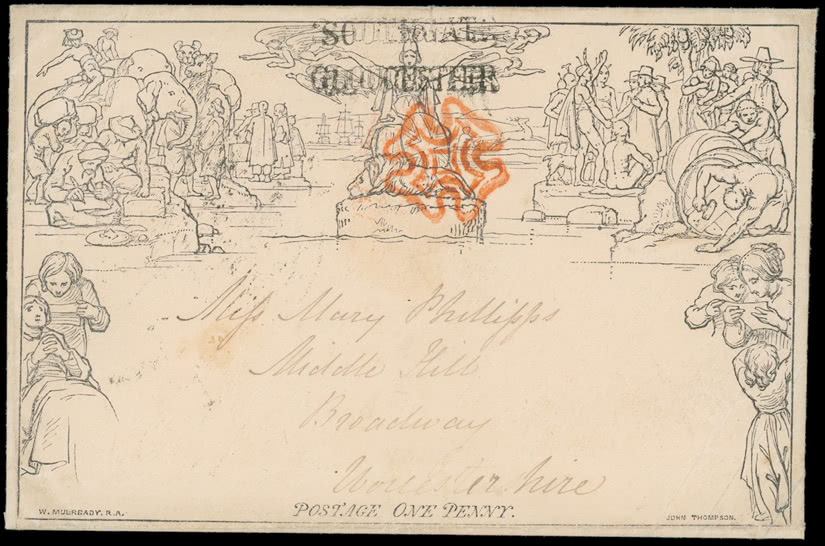 GLOUCESTER
Miss Mary Phillipps
Middle Hill
Broadway
Worcestershire
W. MULREADY. R.A.
POSTAGE ONE PENNY.
JOHN THOMPSON.